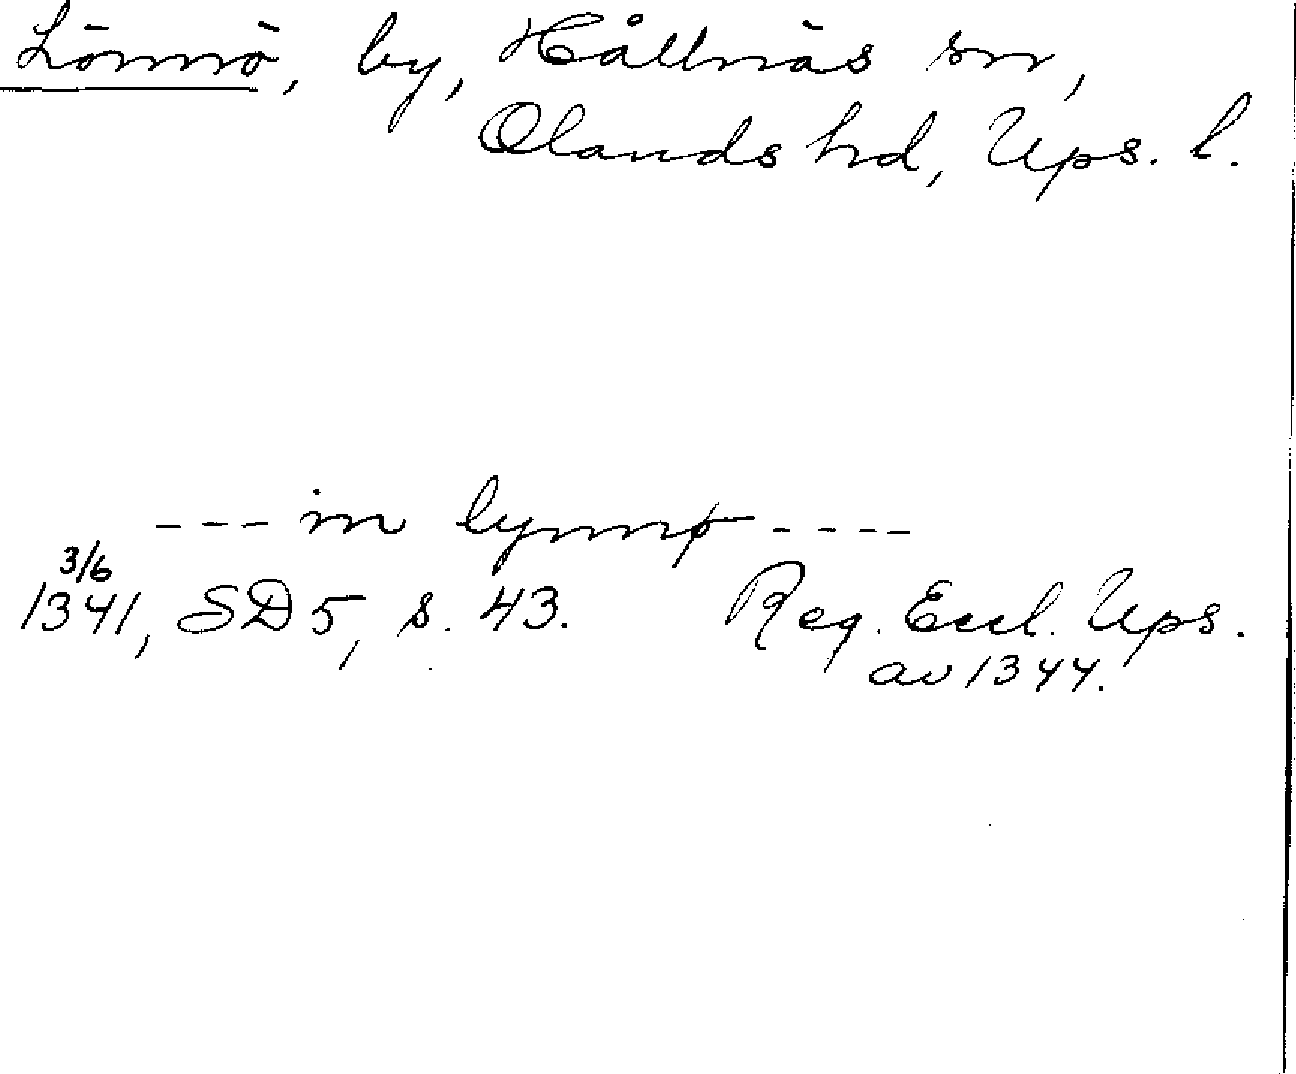 Lönnö, by, Hållnäs sn,
Olands hd, Ups. l.
--- in lynnø ----
3/6
1341, SD 5, s. 43. Reg. Eccl. Ups.
av 1344.